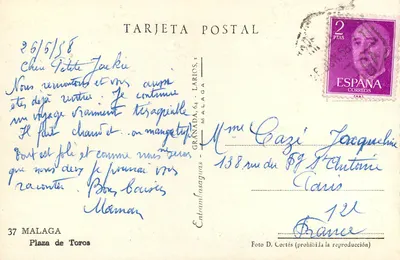 TARJETA POSTAL
26/5/58
Chère Petite Jackie
Nous remontons et vous aussi
êtes déjà rentrée. Je continue
un voyage vraiment très agréable
Il fait chaud et on mange bien
Tout est joli et comme nous
que nous deux je pourrai vous
raconter. Bons baisers
Maman
37 MALAGA
Plaza de Toros
GRANADA, 64 - LARIOS, 5
MALAGA
2
PTAS
ESPAÑA
CORREOS
Mme Cazé Jacqueline
138 rue du Fg St Antoine
Paris
12e
France
Foto D. Cortés (prohibida la reproducción)